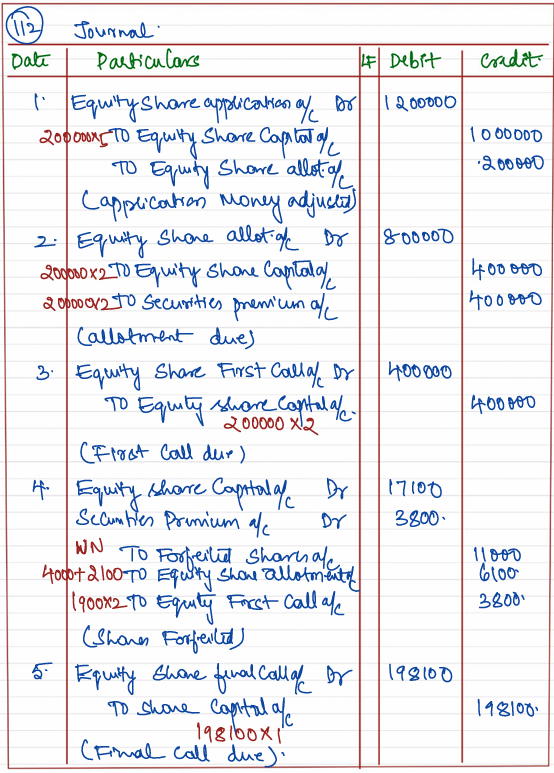 112 Journal.
Date Particulars LF Debit Credit.
1. Equity Share application a/c Dr 1200000
200000x5 TO Equity Share Capital a/c 1000000
TO Equity Share allot a/c 200000
(application Money adjusted)
2. Equity Share allot. a/c Dr 800000
200000x2 TO Equity Share Capital a/c 400000
200000x2 TO Securities premium a/c 400000
(allotment due)
3. Equity Share First Call a/c Dr 400000
TO Equity share Capital a/c. 400000
200000 x2
(First Call due)
4. Equity share Capital a/c Dr 17100
Securities Premium a/c Dr 3800.
WN TO Forfeited Shares a/c 11000
4000+2100 TO Equity Share allotment a/c 6100
1900x2 TO Equity First Call a/c 3800.
(Shares Forfeited)
5. Equity Share final Call a/c Dr 198100
TO Share Capital a/c 198100.
198100x1
(Final Call due).